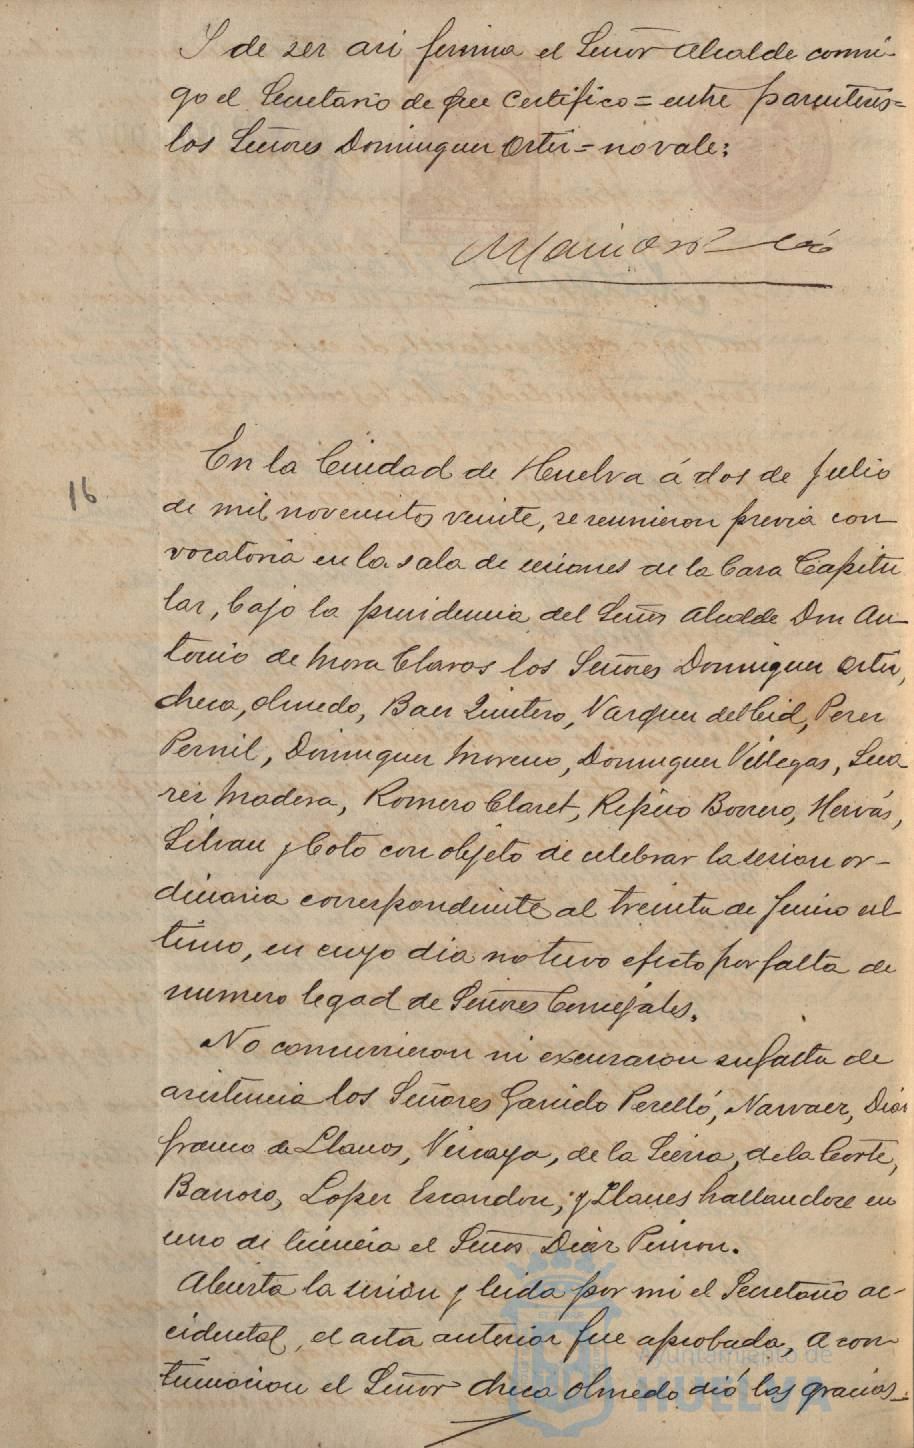 Y de ser asi firma el Señor Alcalde conmi-
go el Secretario de que certifico = entre parentesis =
los Señores Dominguez Ortiz = no vale:
En la Ciudad de Huelva á dos de Julio
16
de mil novecientos veinte, se reunieron previa con
vocatoria en la sala de sesiones de la Casa Capitu
lar, bajo la presidencia del Señor Alcalde Don An
tonio de Mora Claros los Señores Dominguez Ortiz,
Checa, Olmedo, Baez Quintero, Vazquez del Cid, Perez
Pernil, Dominguez Moreno, Dominguez Villegas, Sua
rez Madera, Romero Claret, Repiso Borrero, Hervás,
Silvan y Coto con objeto de celebrar la sesion or-
dinaria correspondiente al treinta de Junio ul
timo, en cuyo dia no tuvo efecto por falta de
numero legad de Señores Concejales.
No concurrieron ni excusaron su falta de
asistencia los Señores Garrido Perelló, Narvaez, Diaz
franco de Llanos, Vizcaya, de la Sierra, de la Corte,
Barroso, Lopez Escandon, y Llanes hallandose en
uso de licencia el Señor Diaz Pinzon.
Abierta la sesion y leida por mi el Secretario ac-
cidental, el acta anterior fue aprobada, A con-
tinuacion el Señor Checa Olmedo dió las gracias
Ayuntamiento de
HUELVA